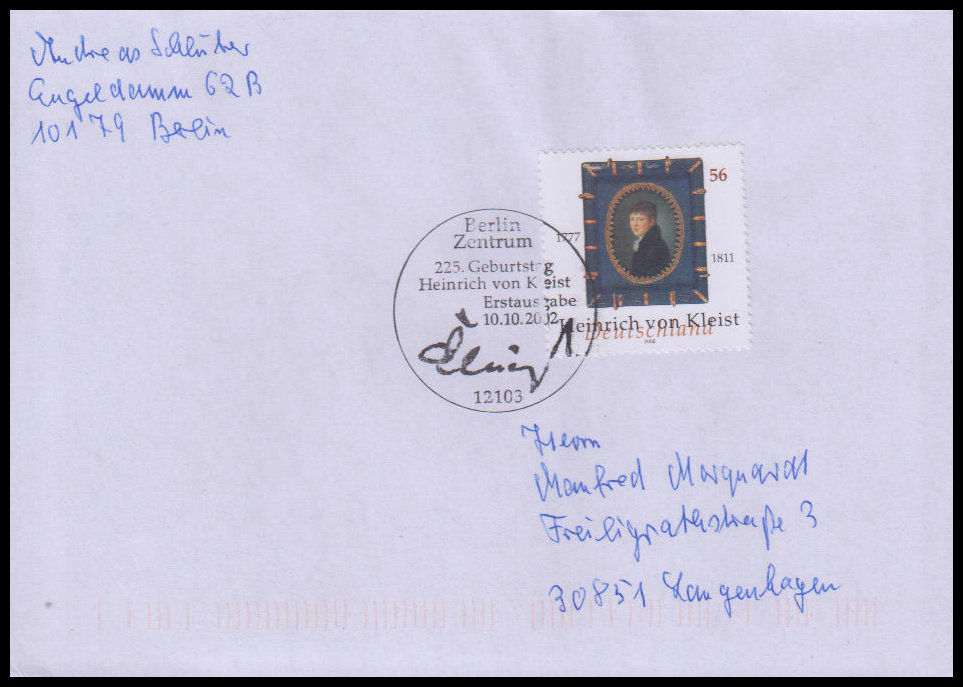 Andreas Schlüter
Engeldamm 62 B
10179 Berlin
56
1777
1811
Heinrich von Kleist
Deutschland
2002
Berlin
Zentrum
225. Geburtstag
Heinrich von Kleist
Erstausgabe
10.10.2002
12103
Herrn
Manfred Marquardt
Freiligrathstraße 3
30851 Langenhagen